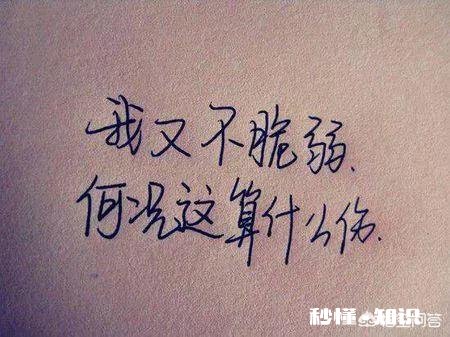 我又不脆弱、
何况这算什么伤.
秒懂 知识